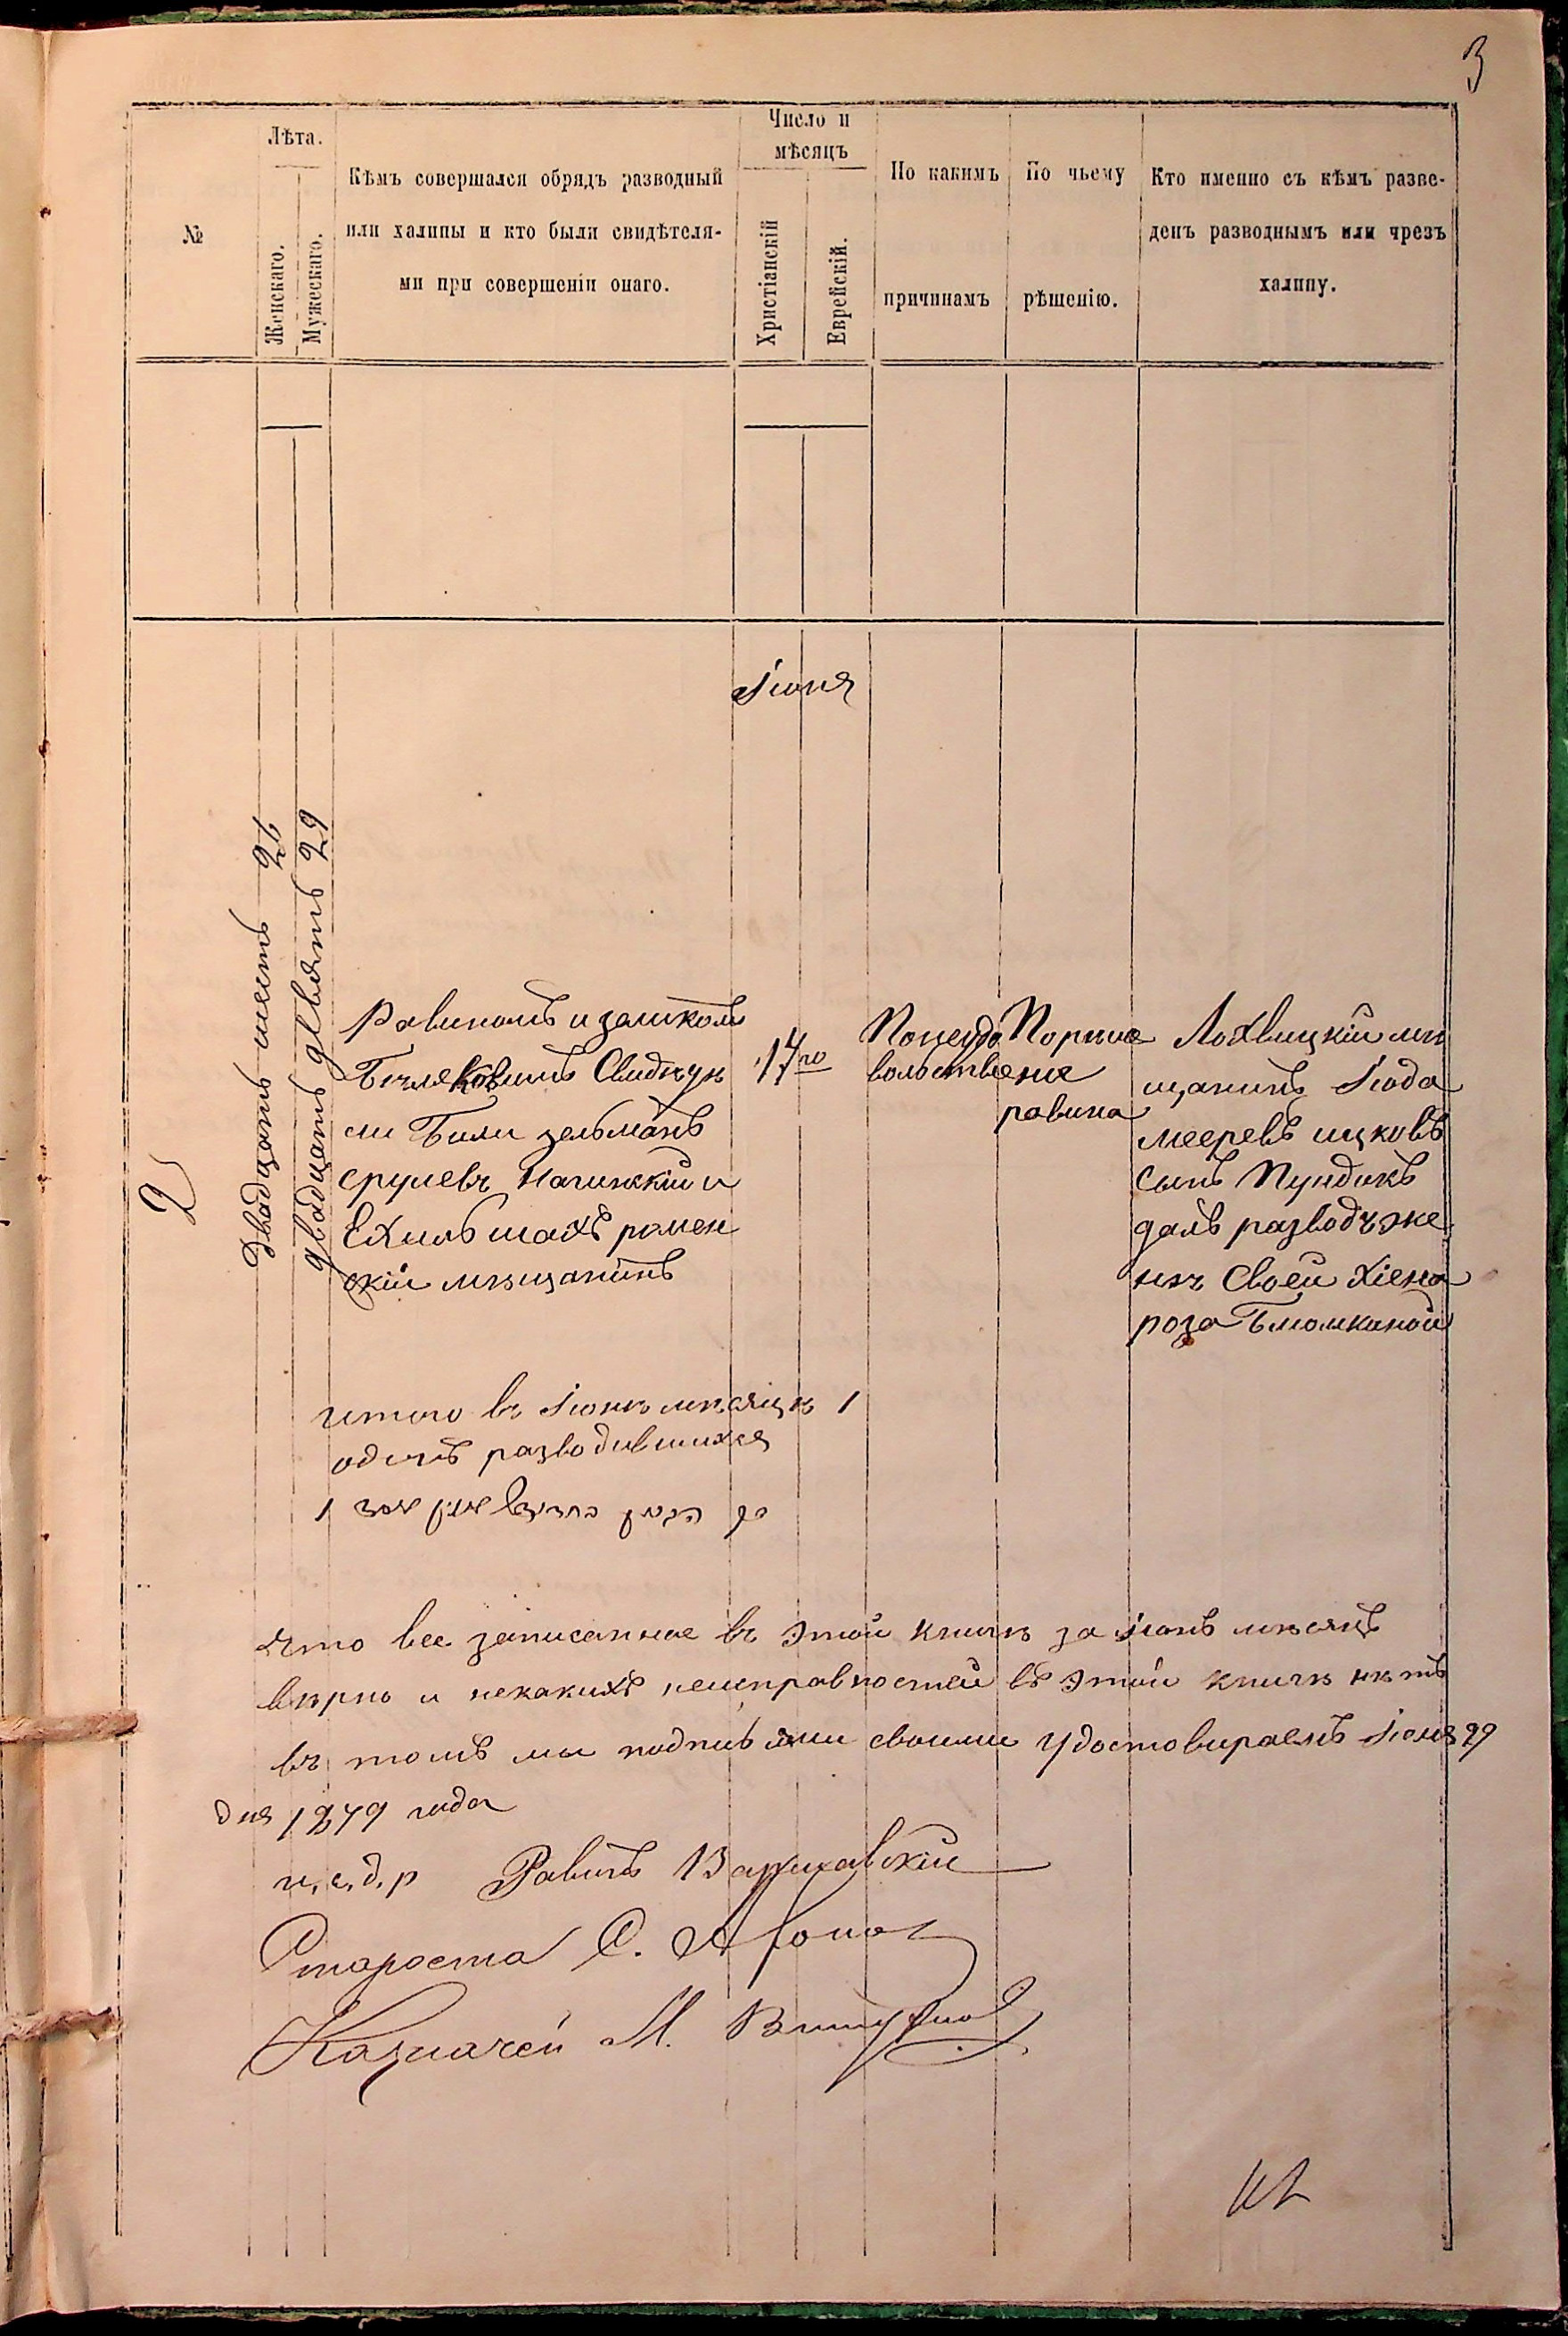 3
№
Лѣта.
Женскаго.
Мужескаго.
Кѣмъ совершался обрядъ разводный
или халицы и кто были свидѣтеля-
ми при совершеніи онаго.
Число и
мѣсяцъ
Христіанскій
Еврейскій.
По какимъ
причинамъ
По чьему
рѣшенію.
Кто именно съ кѣмъ разве-
денъ разводнымъ или чрезъ
халицу.
Іюня
2
Двадцать шесть 26
двадцать девять 29
Равиномъ
Свидѣтѣ
ли Были зельманъ
срулевъ и
Ехиль шахъ ромен
скій мѣщанинъ
17го
вольствие
По рѣше
ние
равина
Лохвицкій мѣ
щанинъ Іюда
мееревъ ицковъ
сынъ Пундикъ
далъ разводъ же
нѣ своей Хіена
роза
итого въ Іюнѣ мѣсяцѣ 1
одинъ разводившихся
1
Что все записанное въ этой книгѣ за іюнь мѣсяцъ
вѣрно и некакихъ неисправностей въ этой книгѣ нѣтъ
въ томъ мы подписями своими удостовираемъ Іюня 29
дня 1879 года
и, с, д, р Равинъ Варшавскій
Староста С.
Казначей М.